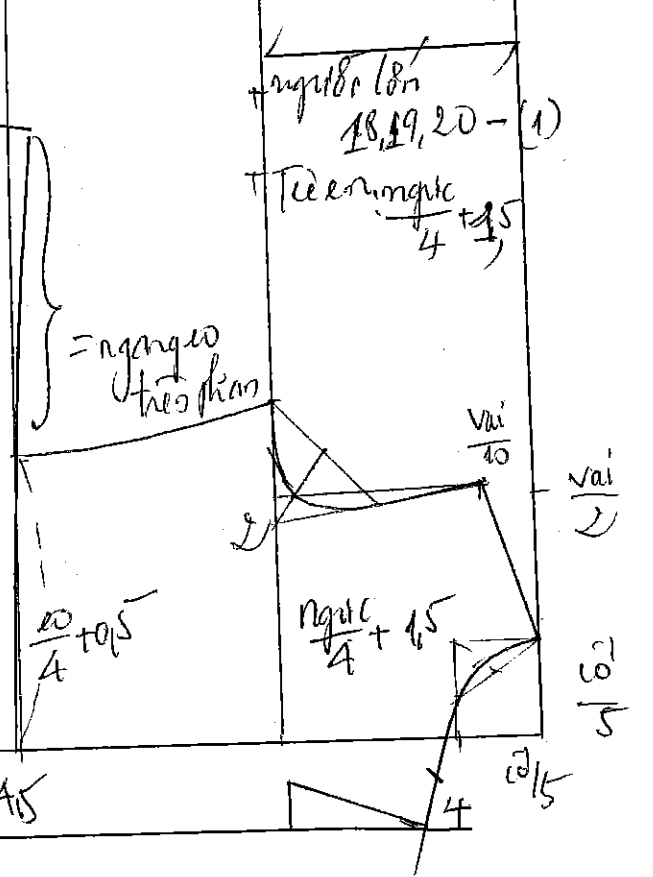 + người lớn
18,19,20 - (1)
+ Từ en: ngực/4 + 1,5
= ngang eo
trên phân
vai/10
vai/2
2
eo/4 + 0,5
ngực/4 + 1,5
cổ/5
cổ/5
4
4,5